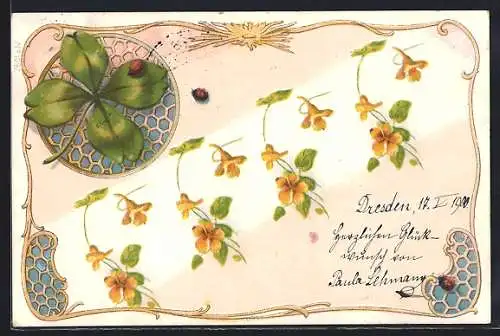 Dresden, 17.
Herzlichen Glück-
wunsch von
Paula Lehmann